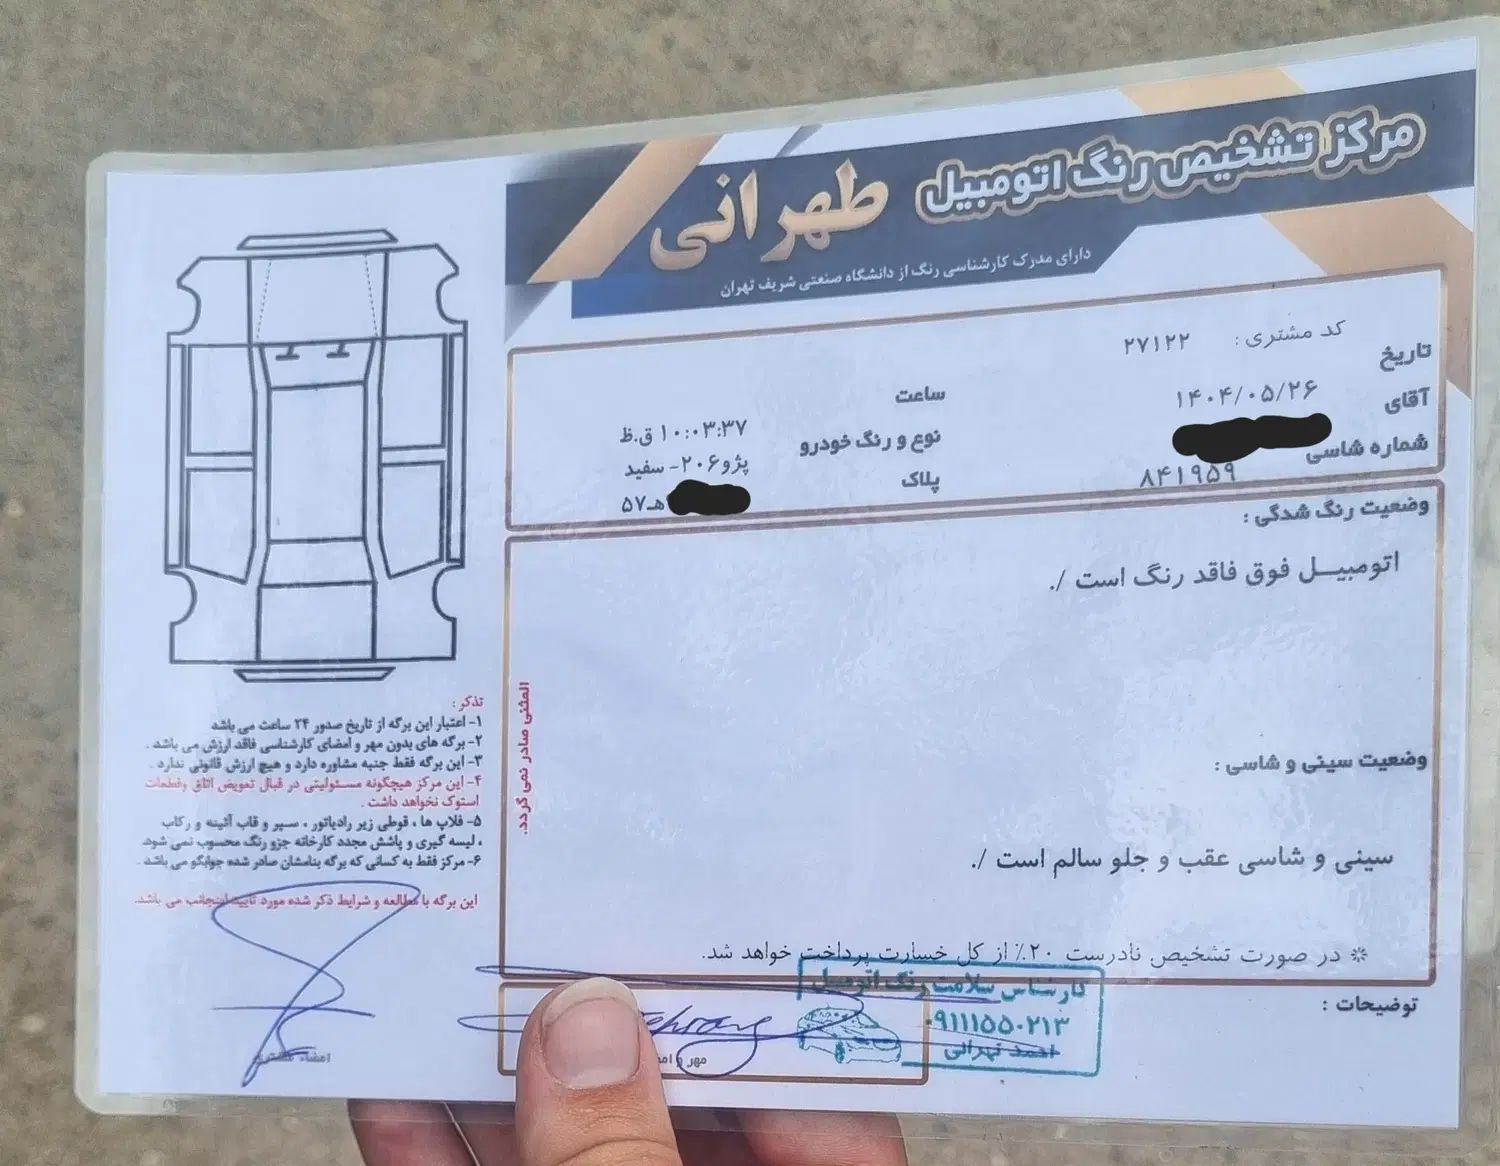 مرکز تشخیص رنگ اتومبیل طهرانی
دارای مدرک کارشناسی رنگ از دانشگاه صنعتی شریف تهران
کد مشتری : ۲۷۱۲۲
تاریخ ۱۴۰۴/۰۵/۲۶
ساعت ۱۰:۰۳:۳۷ ق.ظ
آقای
نوع و رنگ خودرو پژو۲۰۶- سفید
شماره شاسی ۸۴۱۹۵۹
پلاک هـ۵۷
وضعیت رنگ شدگی :
اتومبیــل فوق فاقد رنگ است /.
وضعیت سینی و شاسی :
سینی و شاسی عقب و جلو سالم است /.
در صورت تشخیص نادرست ۲۰٪ از کل خسارت پرداخت خواهد شد.
توضیحات :
کارشناس سلامت رنگ اتومبیل
۰۹۱۱۱۵۵۰۲۱۳
احمد تهرانی
مهر و
المثنی صادر نمی گردد.
تذکر :
۱- اعتبار این برگه از تاریخ صدور ۲۴ ساعت می باشد
۲- برگه های بدون مهر و امضای کارشناسی فاقد ارزش می باشد .
۳- این برگه فقط جنبه مشاوره دارد و هیچ ارزش قانونی ندارد .
۴- این مرکز هیچگونه مسئولیتی در قبال تعویض اتاق وقطعات
استوک نخواهد داشت .
۵- فلاپ ها ، قوطی زیر رادیاتور ، سپر و قاب آئینه و رکاب
، لیسه گیری و پاشش مجدد کارخانه جزو رنگ محسوب نمی شود.
۶- مرکز فقط به کسانی که برگه بنامشان صادر شده جوابگو می باشد .
این برگه با مطالعه و شرایط ذکر شده مورد تایید اینجانب می باشد.
امضاء مشتری